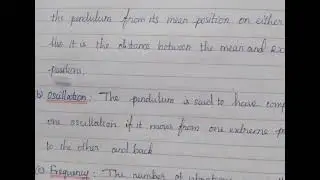 the pendulum from its mean position on either
like it is the distance between the mean and ex
position.
b) Oscillation : The pendulum is said to have comp
one oscillation if it moves from one extreme p
to the other and back
c) Frequency : The number of vibrations